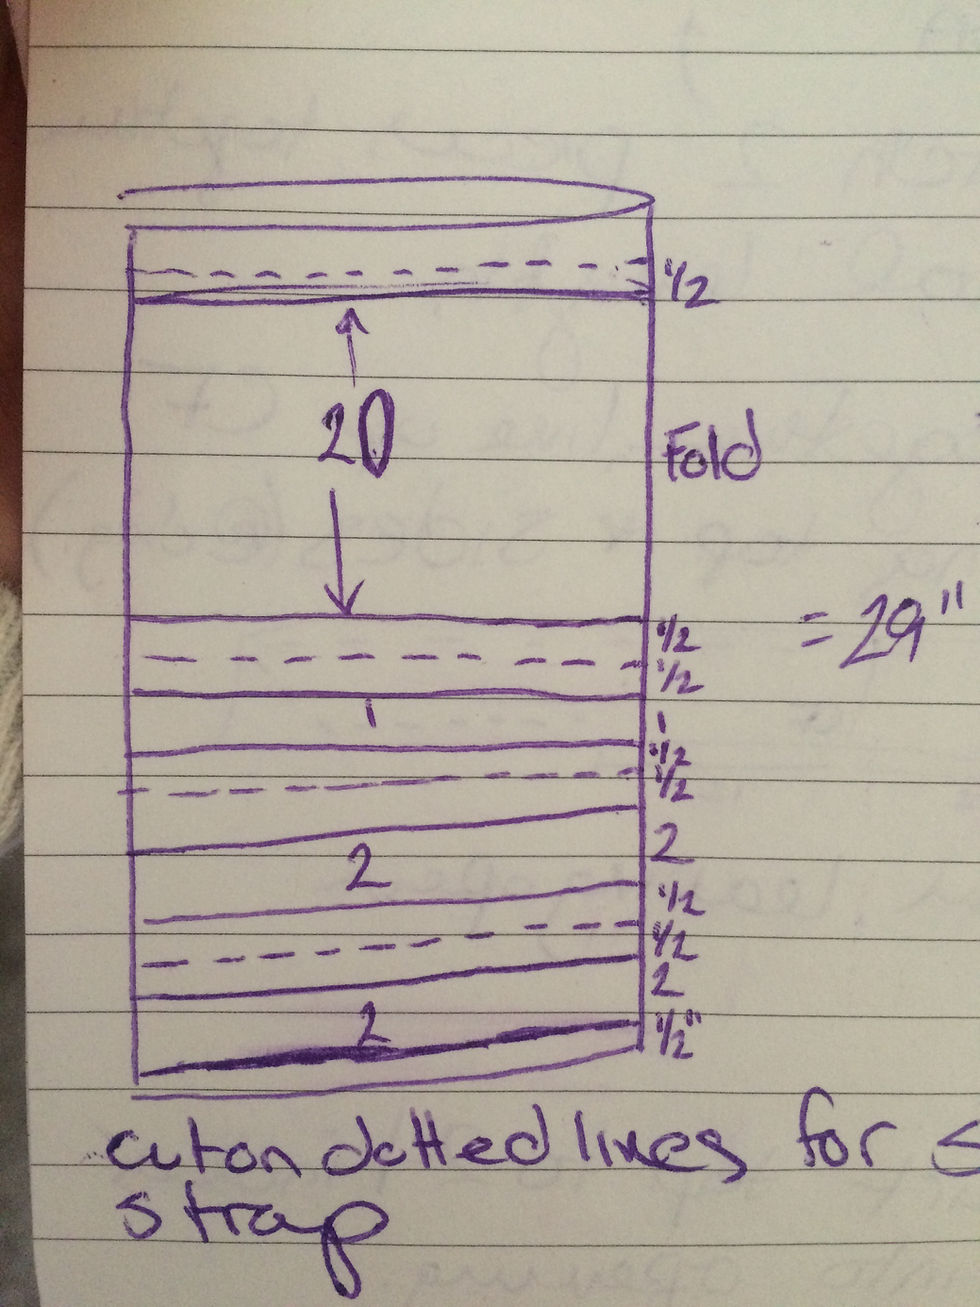 1/2
20
Fold
1/2
= 29"
1/2
1 1
1/2
1/2
2 2
1/2
1/2
2
2 1/2"
cut on dotted lines for
strap